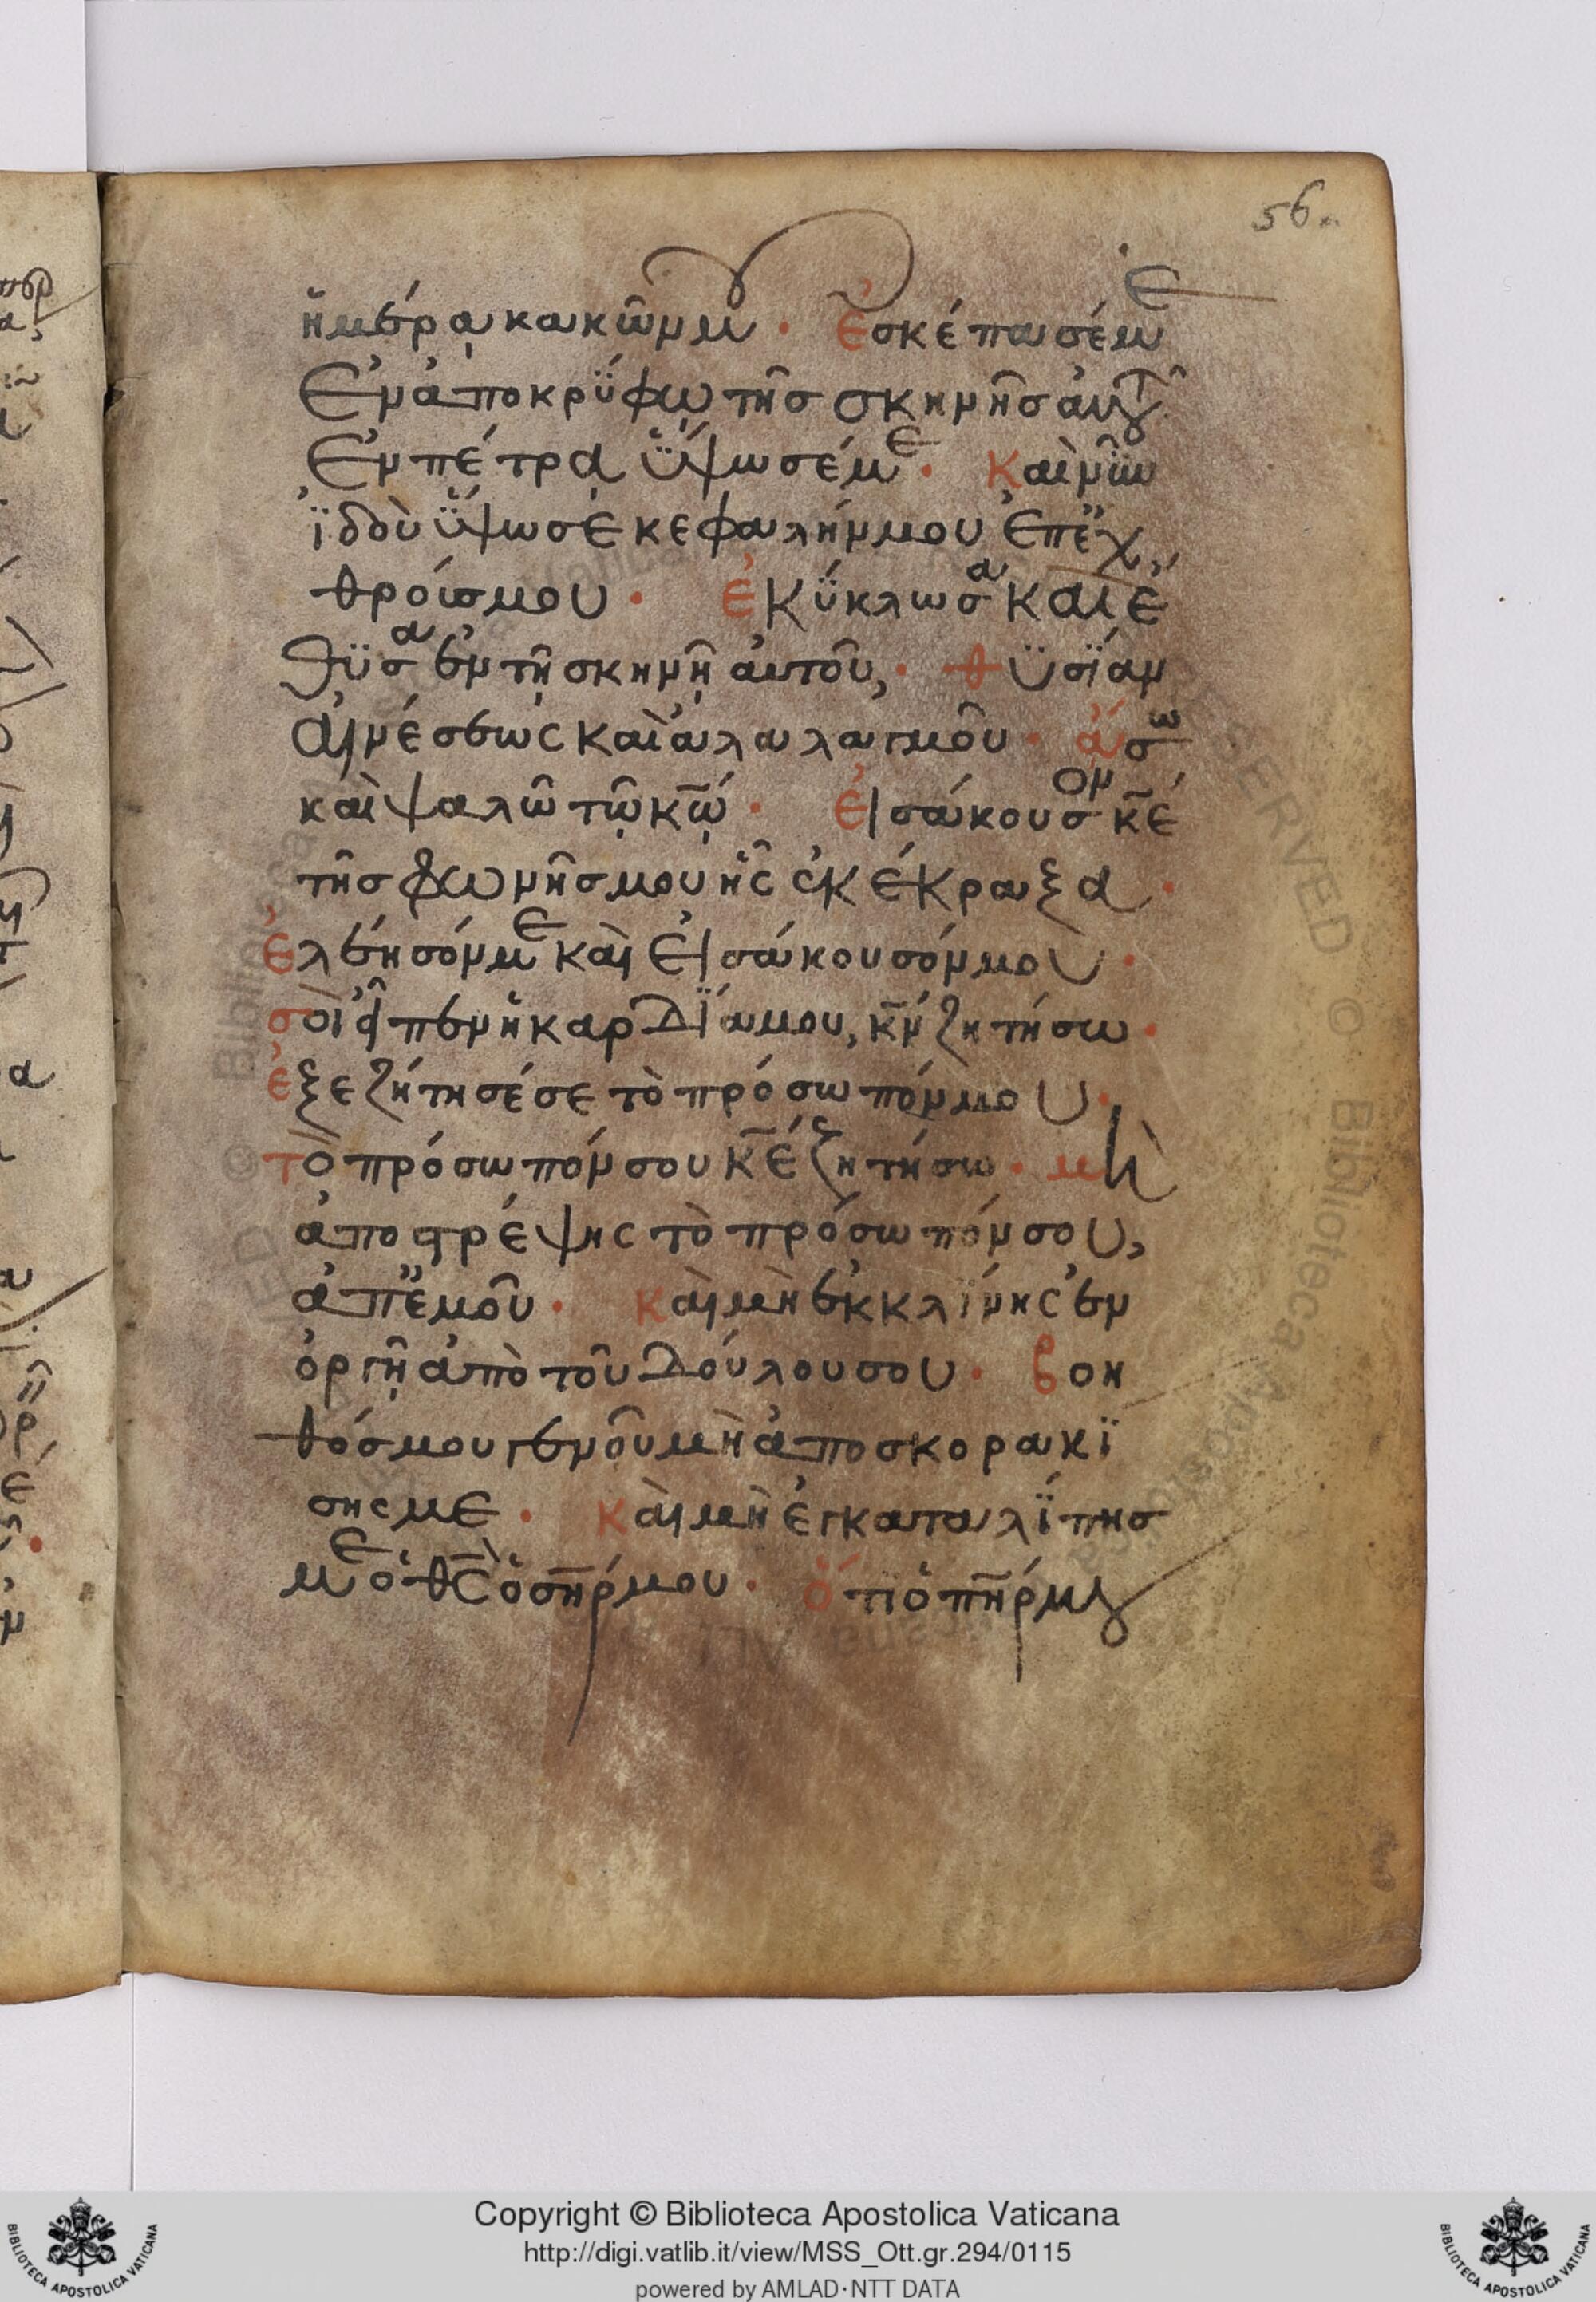 56.
ἡμέρα κακῶν μου· Ἐσκέπασέ με
Ἐν ἀποκρύφω τῆς σκηνῆς αὐτοῦ
Ἐν πέτρα ὕψωσέ με· Καὶ νῦν
ἰδοὺ ὕψωσε κεφαλήν μου ἐπ' ἐχ
θρούς μου· ἐκύκλωσα καὶ ἔ
θυσα ἐν τῆ σκηνῆ αὐτοῦ, · θυσίαν
αἰνέσεως καὶ ἀλαλαγμοῦ· ἄσω
καὶ ψαλῶ τῶ κω· Εἰσάκουσον κε
τῆς φωνῆς μου ἧς ἐκέκραξα·
ἐλέησόν με καὶ εἰσάκουσόν μου·
σοὶ εἶπεν ἡ καρδία μου, κν ζητήσω·
ἐξεζήτησέ σε τὸ πρόσωπόν μου·
τὸ πρόσωπόν σου κε ζητήσω· μὴ
ἀποστρέψης τὸ πρόσωπόν σου,
ἀπ' ἐμοῦ· καὶ μὴ ἐκκλίνης ἐν
ὀργῆ ἀπὸ τοῦ δούλου σου· βοη
θός μου γενοῦ μὴ ἀποσκορακί
σης με· καὶ μὴ ἐγκαταλίπης
με ὁ θς ὁ σηρ μου· ὅτι ὁ πηρ μου
Copyright © Biblioteca Apostolica Vaticana
http://digi.vatlib.it/view/MSS_Ott.gr.294/0115
powered by AMLAD·NTT DATA